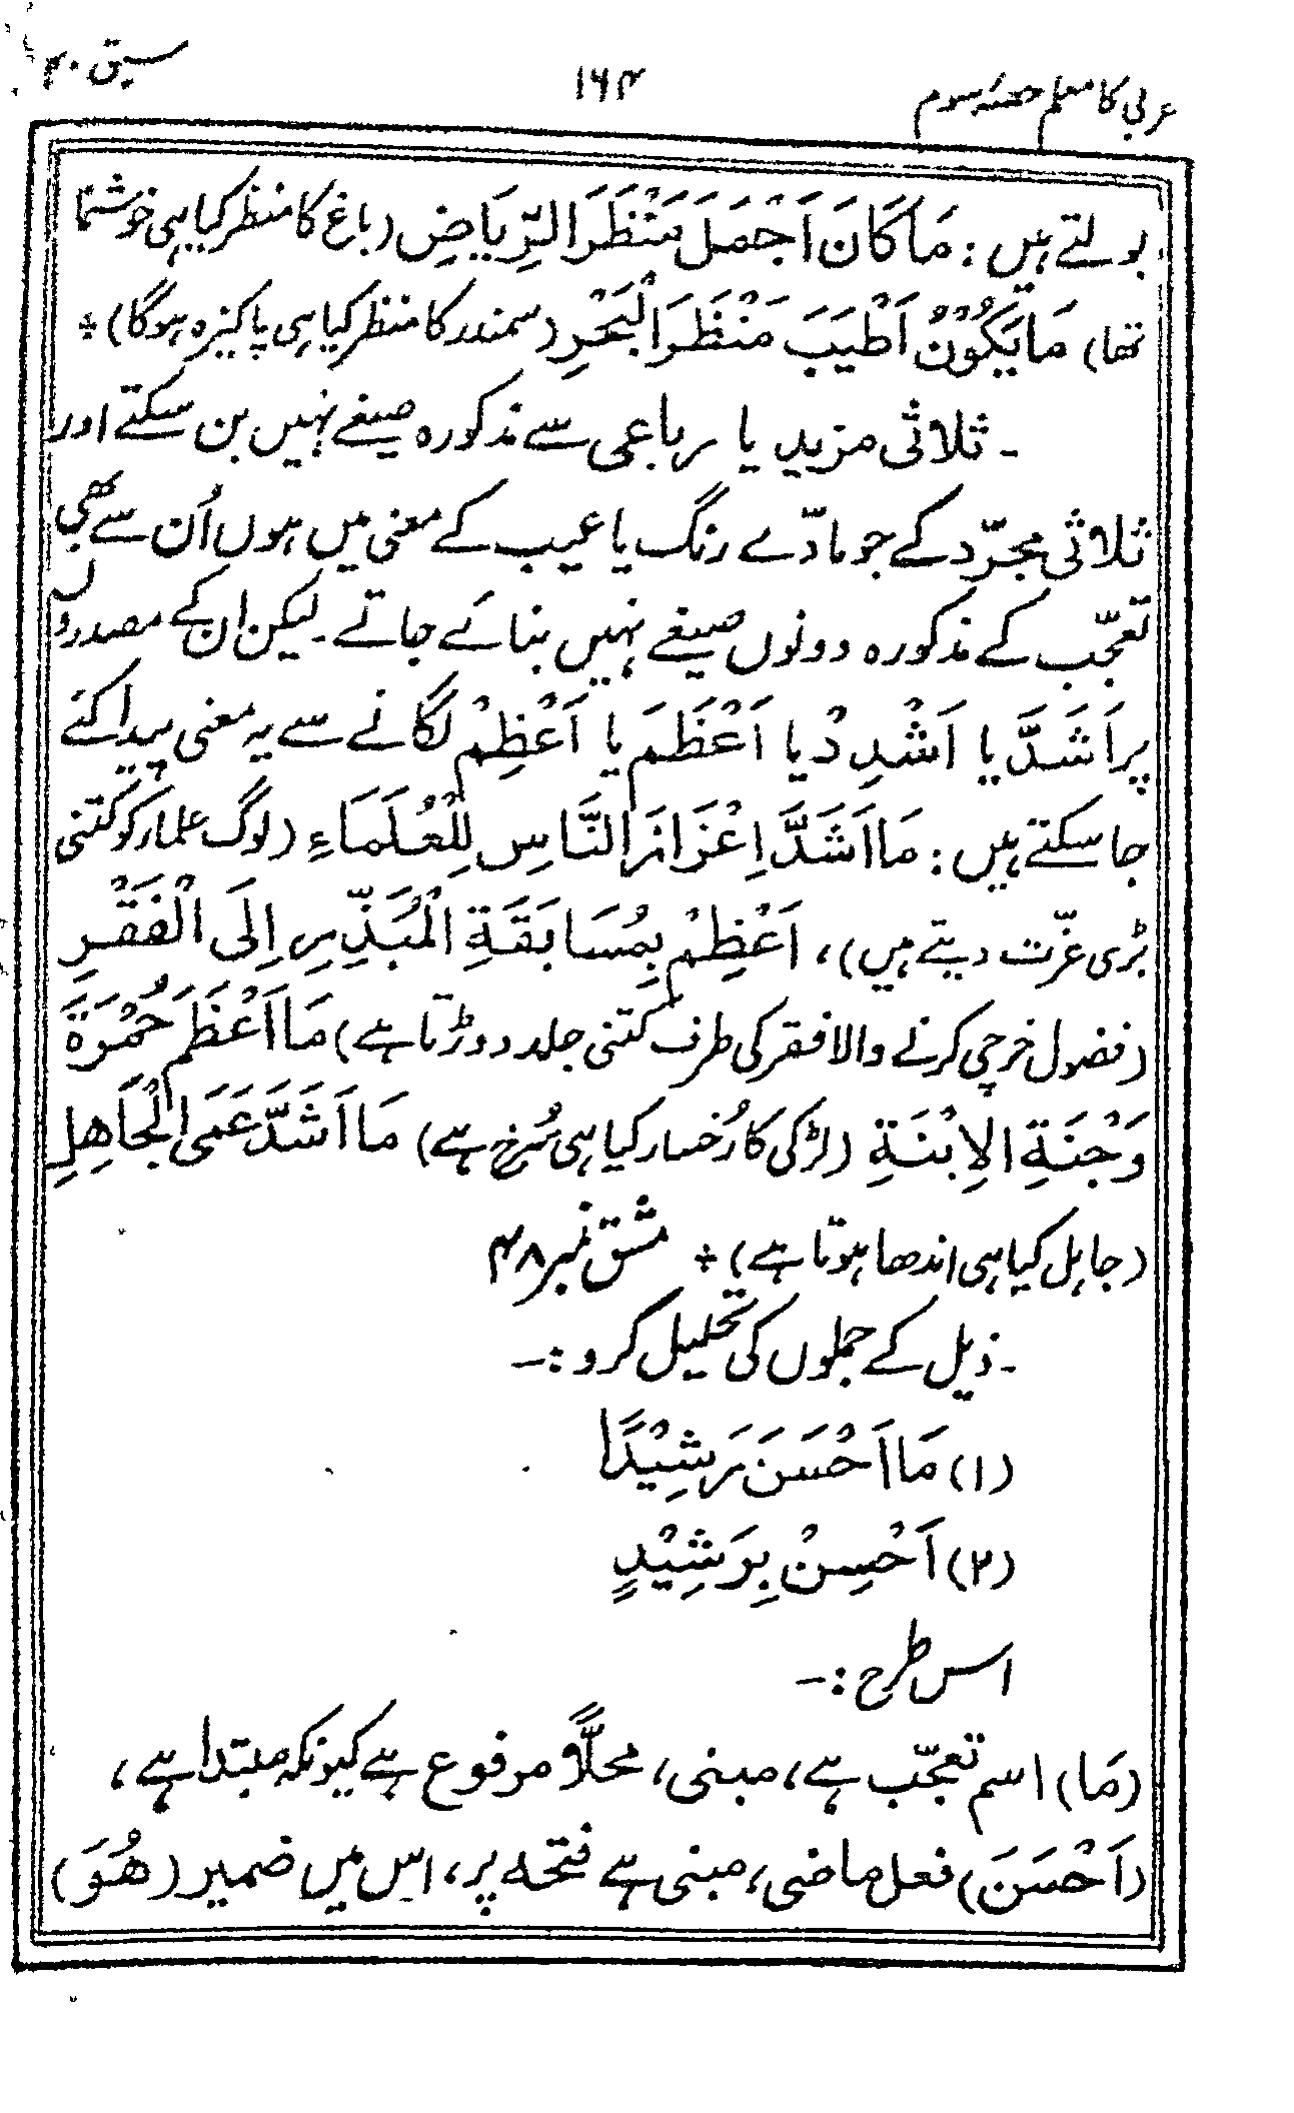 عربی کا معلم حصّہ سوم ۱۶۴ سبق ۴۰
بولتے ہیں : مَا كَانَ اَجْمَلَ مَنْظَرَ الرِّيَاضِ (باغ کا منظر کیا ہی خوشنما
تھا) مَا يَكُوْنُ اَطْيَبَ مَنْظَرَ الْبَحْرِ (سمندر کا منظر کیا ہی پاکیزہ ہوگا) ÷
۔ ثلاثی مزید یا رباعی سے مذکورہ صیغے نہیں بن سکتے اور
ثلاثی مجرّد کے جو مادّے رنگ یا عیب کے معنی میں ہوں اُن سے بھی
تعجّب کے مذکورہ دونوں صیغے نہیں بنائے جاتے ۔ لیکن ان کے مصدروں
پر اَشَدَّ یا اَشْدِدْ یا اَعْظَمَ یا اَعْظِمْ لگانے سے یہ معنی پیدا کئے
جا سکتے ہیں : مَا اَشَدَّ اِعْزَازَ النَّاسِ لِلْعُلَمَاءِ (لوگ علمار کو کتنی
بڑی عزّت دیتے ہیں) ، اَعْظِمْ بِمُسَابَقَةِ الْمُبَذِّرِ اِلَى الْفَقْرِ
(فضول خرچی کرنے والا فقر کی طرف کتنی جلد دوڑتا ہے) مَا اَعْظَمَ حُمْرَةَ
وَجْنَةِ الاِبْنَةِ (لڑکی کا رُخسار کیا ہی سُرخ ہے) مَا اَشَدَّ عَمَى الْجَاهِلِ
(جاہل کیا ہی اندھا ہوتا ہے) ÷ مشق نمبر ۴۸
۔ ذیل کے جملوں کی تحلیل کرو :۔
(۱) مَا اَحْسَنَ رَشِيْدًا
(۲) اَحْسِنْ بِرَشِيْدٍ
اس طرح :۔
(مَا) اسم تعجّب ہے ، مبنی ، محلّاً مرفوع ہے کیونکہ مبتدا ہے ،
(اَحْسَنَ) فعل ماضی ، مبنی ہے فتحہ پر ، اس میں ضمیر (هُوَ)